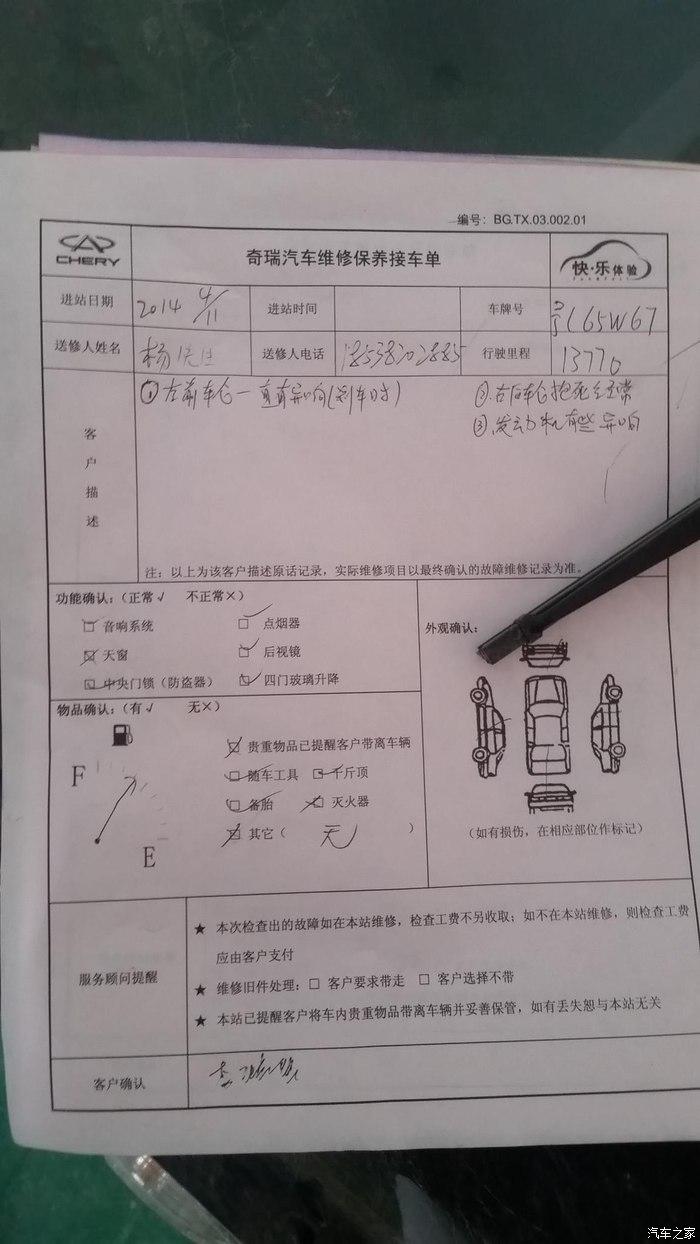 编号：BG.TX.03.002.01
CHERY
奇瑞汽车维修保养接车单
快·乐体验
进站日期 2014 4/11 进站时间 车牌号 C65W67
送修人姓名 杨先生 送修人电话 行驶里程 13770
客户描述
①左前车轮一直有异响(刹车时) ②.右后车轮抱死经常
③.发动机有些异响
注：以上为该客户描述原话记录，实际维修项目以最终确认的故障维修记录为准。
功能确认：（正常√ 不正常×）
音响系统 点烟器
天窗 后视镜
中央门锁（防盗器） 四门玻璃升降
外观确认：
物品确认：（有√ 无×）
F
E
贵重物品已提醒客户带离车辆
随车工具 千斤顶
备胎 灭火器
其它（ 无 ）
（如有损伤，在相应部位作标记）
服务顾问提醒
★ 本次检查出的故障如在本站维修，检查工费不另收取；如不在本站维修，则检查工费
应由客户支付
★ 维修旧件处理：□ 客户要求带走 □ 客户选择不带
★ 本站已提醒客户将车内贵重物品带离车辆并妥善保管，如有丢失恕与本站无关
客户确认
汽车之家